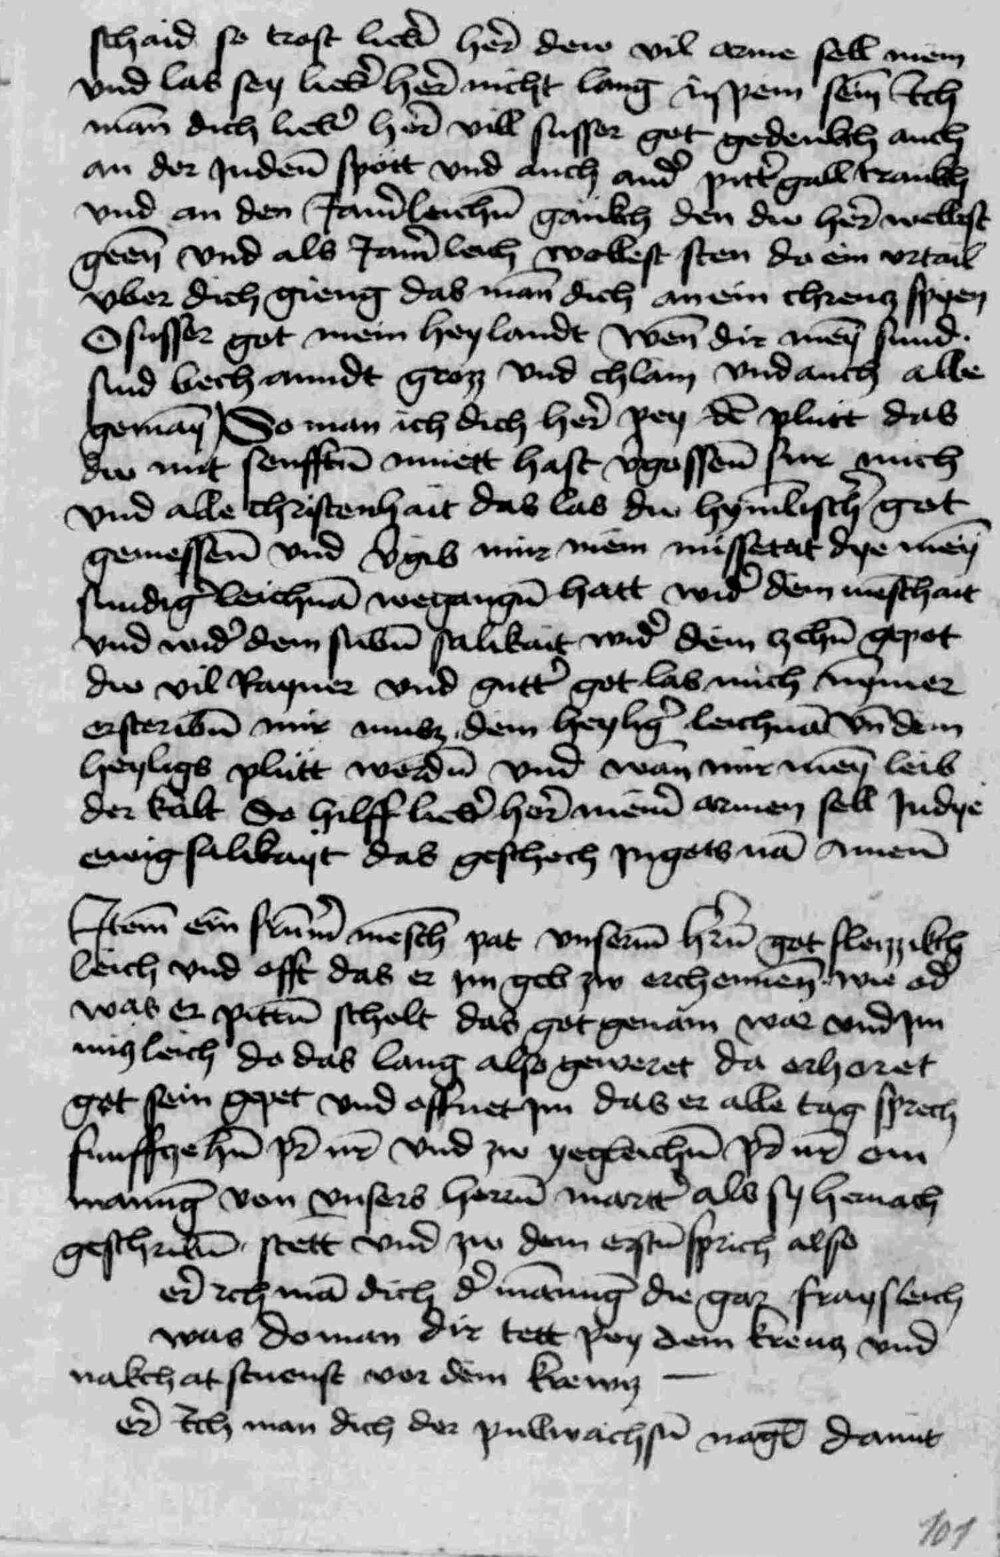 schaid so trost lieber her dew vil arme sell mein
vnd las sey lieber her nicht lang in pein sein Ich
man dich lieber her vill susser got gedenkch auch
an der Juden spott vnd auch ander pitter gall trankch
vnd an den Jamerleichn gankch den dw her woltest
geen vnd als Jamerleich woltest sten do ein vrtail
vber dich gieng das man dich an ein chreucz spyen
O susser got mein heylandt wen dir mein sund
sind bechanndt groz vnd chlain vnd auch alle
gemain So man ich dich her pey dem plutt das
dw mit senfftn muett hast vergossen fur mich
vnd alle christenhait das las dw hymlischer got
geniessen vnd vergib mir mein missetat dye mein
sundiger leichnam wegangn hatt wider dein menschait
vnd wider dein sibn salikait wider dein zehn gepot
dw vil Rayner vnd gutter got las mich nymer
ersteribn mir muss dein heyliger leichnam vnd dein
heyligs plutt werdn vnd wan mir mein leib
der kalt So hilff lieber her meiner armen sell In dye
ewig salikayt das geschech In gots nam Amen
Item ein frummer mensch pat vnserm hern got fleizzikch
leich vnd offt das er im geb zw erchennen wie oder
was er pittn scholt das got genam war vnd im
nuczleich do das lang also geweret da erhoret
got sein gepet vnd offnet im das er alle tag sprech
funffczehn pr nr vnd zw yegleichn pr nr ein
manung von vnsers herrn martter als sy hernach
geschribn stett vnd zw dem erstn sprich also
er ich man dich der manung die gar fraysleich
was do man dir tett pey dem kreucz vnd
nakchat stuenst vor dem krewcz
er Ich man dich der pullwachsn nagel damit
101